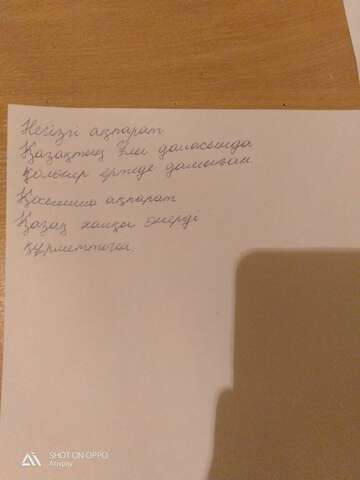 Негізгі ақпарат
Қазақтың Ұлы даласында
қолөнер ертеде дамыған
Қосымша ақпарат
Қазақ халқы өнерді
құрметтеген.
SHOT ON OPPO
Aı